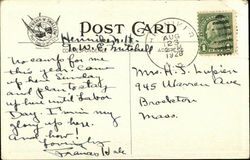 POST CARD
Henniker, N.H.
℅ W.C. Mitchell
No camp for me
this year. Came
up here Sunday
and plan to stay
up here until Labor
Day. I'm in my
glory up here.
and how!
Lovingly,
Frances Hale
AUG
23
1928
1
Mrs. H. S. Lupien
945 Warren Ave
Brockton
Mass.